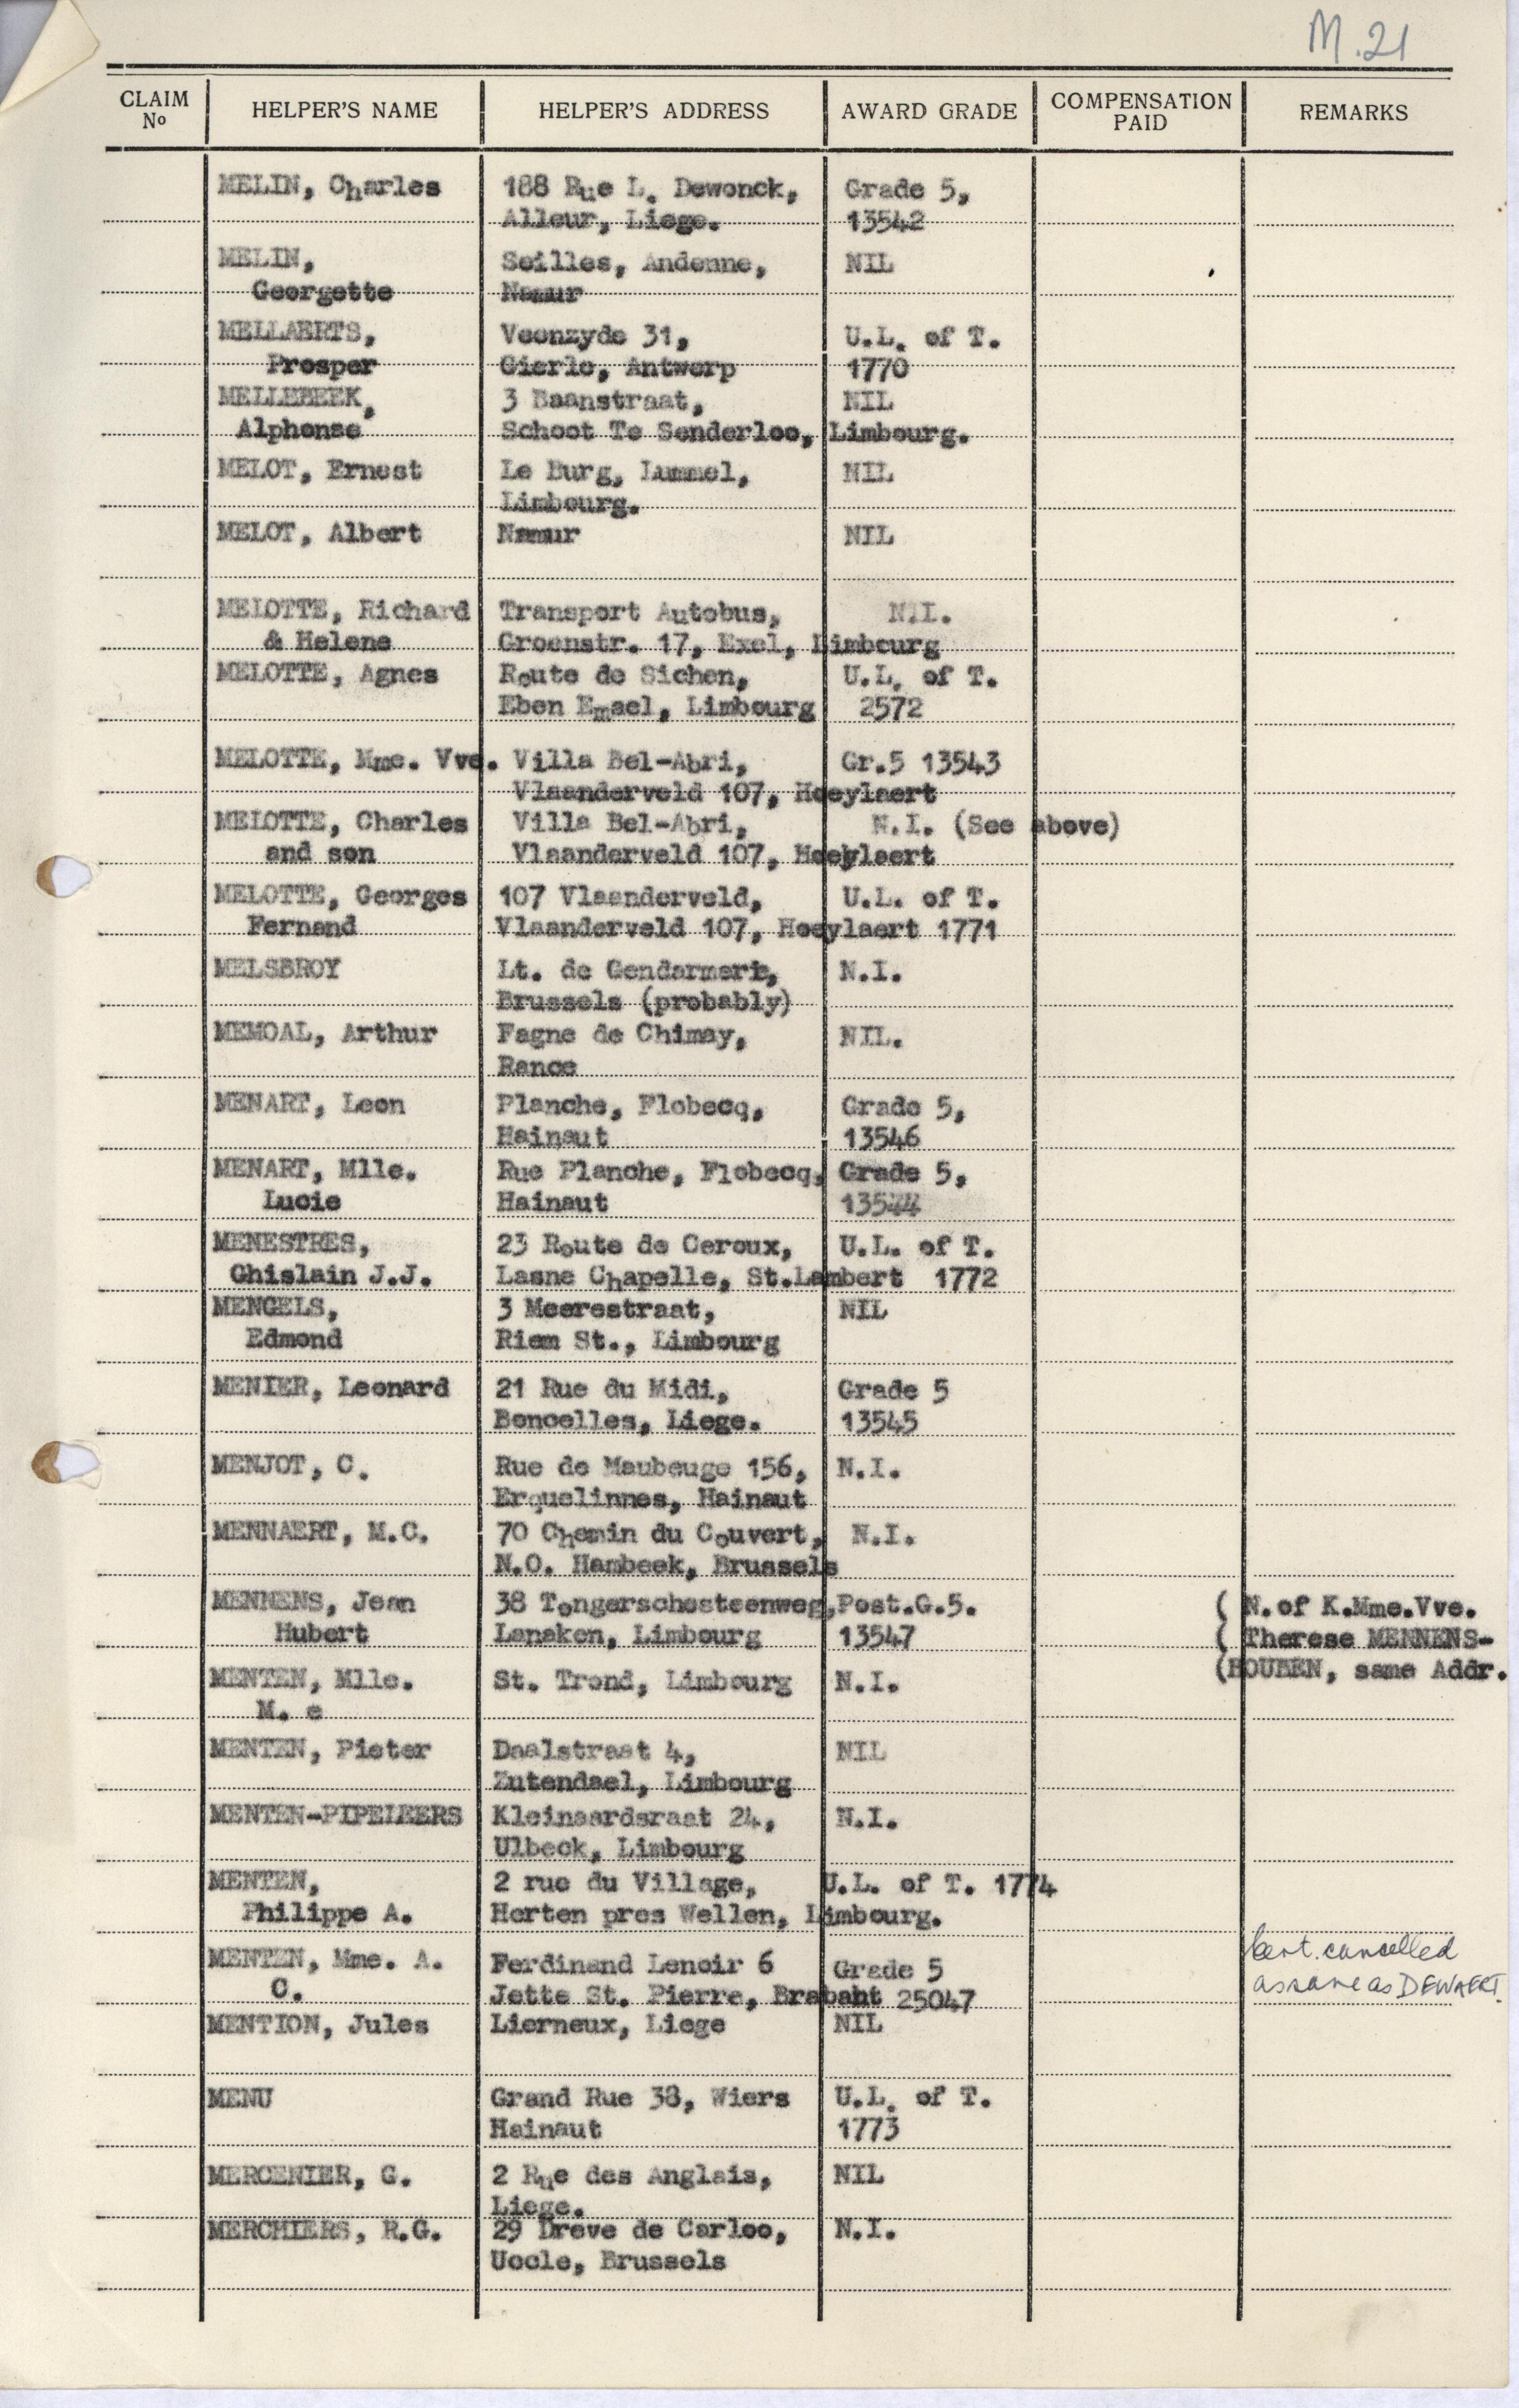 M.21
CLAIM No HELPER'S NAME HELPER'S ADDRESS AWARD GRADE COMPENSATION PAID REMARKS
MELIN, Charles 188 Rue L. Dewonck, Grade 5,
Alleur, Liege. 13542
MELIN, Seilles, Andenne, NIL
Georgette Namur
MELLAERTS, Veenzyde 31, U.L. of T.
Prosper Gierle, Antwerp 1770
MELLEBEEK, 3 Baanstraat, NIL
Alphonse Schoot Te Senderloo, Limbourg.
MELOT, Ernest Le Burg, Lummel, NIL
Limbourg.
MELOT, Albert Namur NIL
MELOTTE, Richard Transport Autobus, N.I.
& Helene Groenstr. 17, Exel, Limbourg
MELOTTE, Agnes Route de Sichen, U.L. of T.
Eben Emael, Limbourg 2572
MELOTTE, Mme. Vve. Villa Bel-Abri, Gr.5 13543
Vlaanderveld 107, Hoeylaert
MELOTTE, Charles Villa Bel-Abri, N.I. (See above)
and son Vlaanderveld 107, Hoeylaert
MELOTTE, Georges 107 Vlaanderveld, U.L. of T.
Fernand Vlaanderveld 107, Hoeylaert 1771
MELSBROY Lt. de Gendarmerie, N.I.
Brussels (probably)
MEMOAL, Arthur Fagne de Chimay, NIL.
Rance
MENART, Leon Planche, Flobecq, Grade 5,
Hainaut 13546
MENART, Mlle. Rue Planche, Flobecq, Grade 5,
Lucie Hainaut 13544
MENESTRES, 23 Route de Ceroux, U.L. of T.
Ghislain J.J. Lasne Chapelle, St.Lambert 1772
MENGELS, 3 Meerestraat, NIL
Edmond Riem St., Limbourg
MENIER, Leonard 21 Rue du Midi, Grade 5
Boncelles, Liege. 13545
MENJOT, C. Rue de Maubeuge 156, N.I.
Erquelinnes, Hainaut
MENNAERT, M.C. 70 Chemin du Couvert, N.I.
N.O. Hambeek, Brussels
MENNENS, Jean 38 Tongerschesteenweg, Post.G.5. ( N.of K.Mme.Vve.
Hubert Lanaken, Limbourg 13547 ( Therese MENNENS-
(HOUBEN, same Addr.
MENTEN, Mlle. St. Trond, Limbourg N.I.
M. e
MENTEN, Pieter Daalstraat 4, NIL
Zutendael, Limbourg
MENTEN-PIPELEERS Kleinaardsraat 24, N.I.
Ulbeck, Limbourg
MENTEN, 2 rue du Village, U.L. of T. 1774
Philippe A. Herten pres Wellen, Limbourg.
MENTEN, Mme. A. Ferdinand Lenoir 6 Grade 5 Cert. cancelled
C. Jette St. Pierre, Brabant 25047 as same as DEWAERT.
MENTION, Jules Lierneux, Liege NIL
MENU Grand Rue 38, Wiers U.L. of T.
Hainaut 1773
MERCENIER, G. 2 Rue des Anglais, NIL
Liege.
MERCHIERS, R.G. 29 Dreve de Carloo, N.I.
Uccle, Brussels